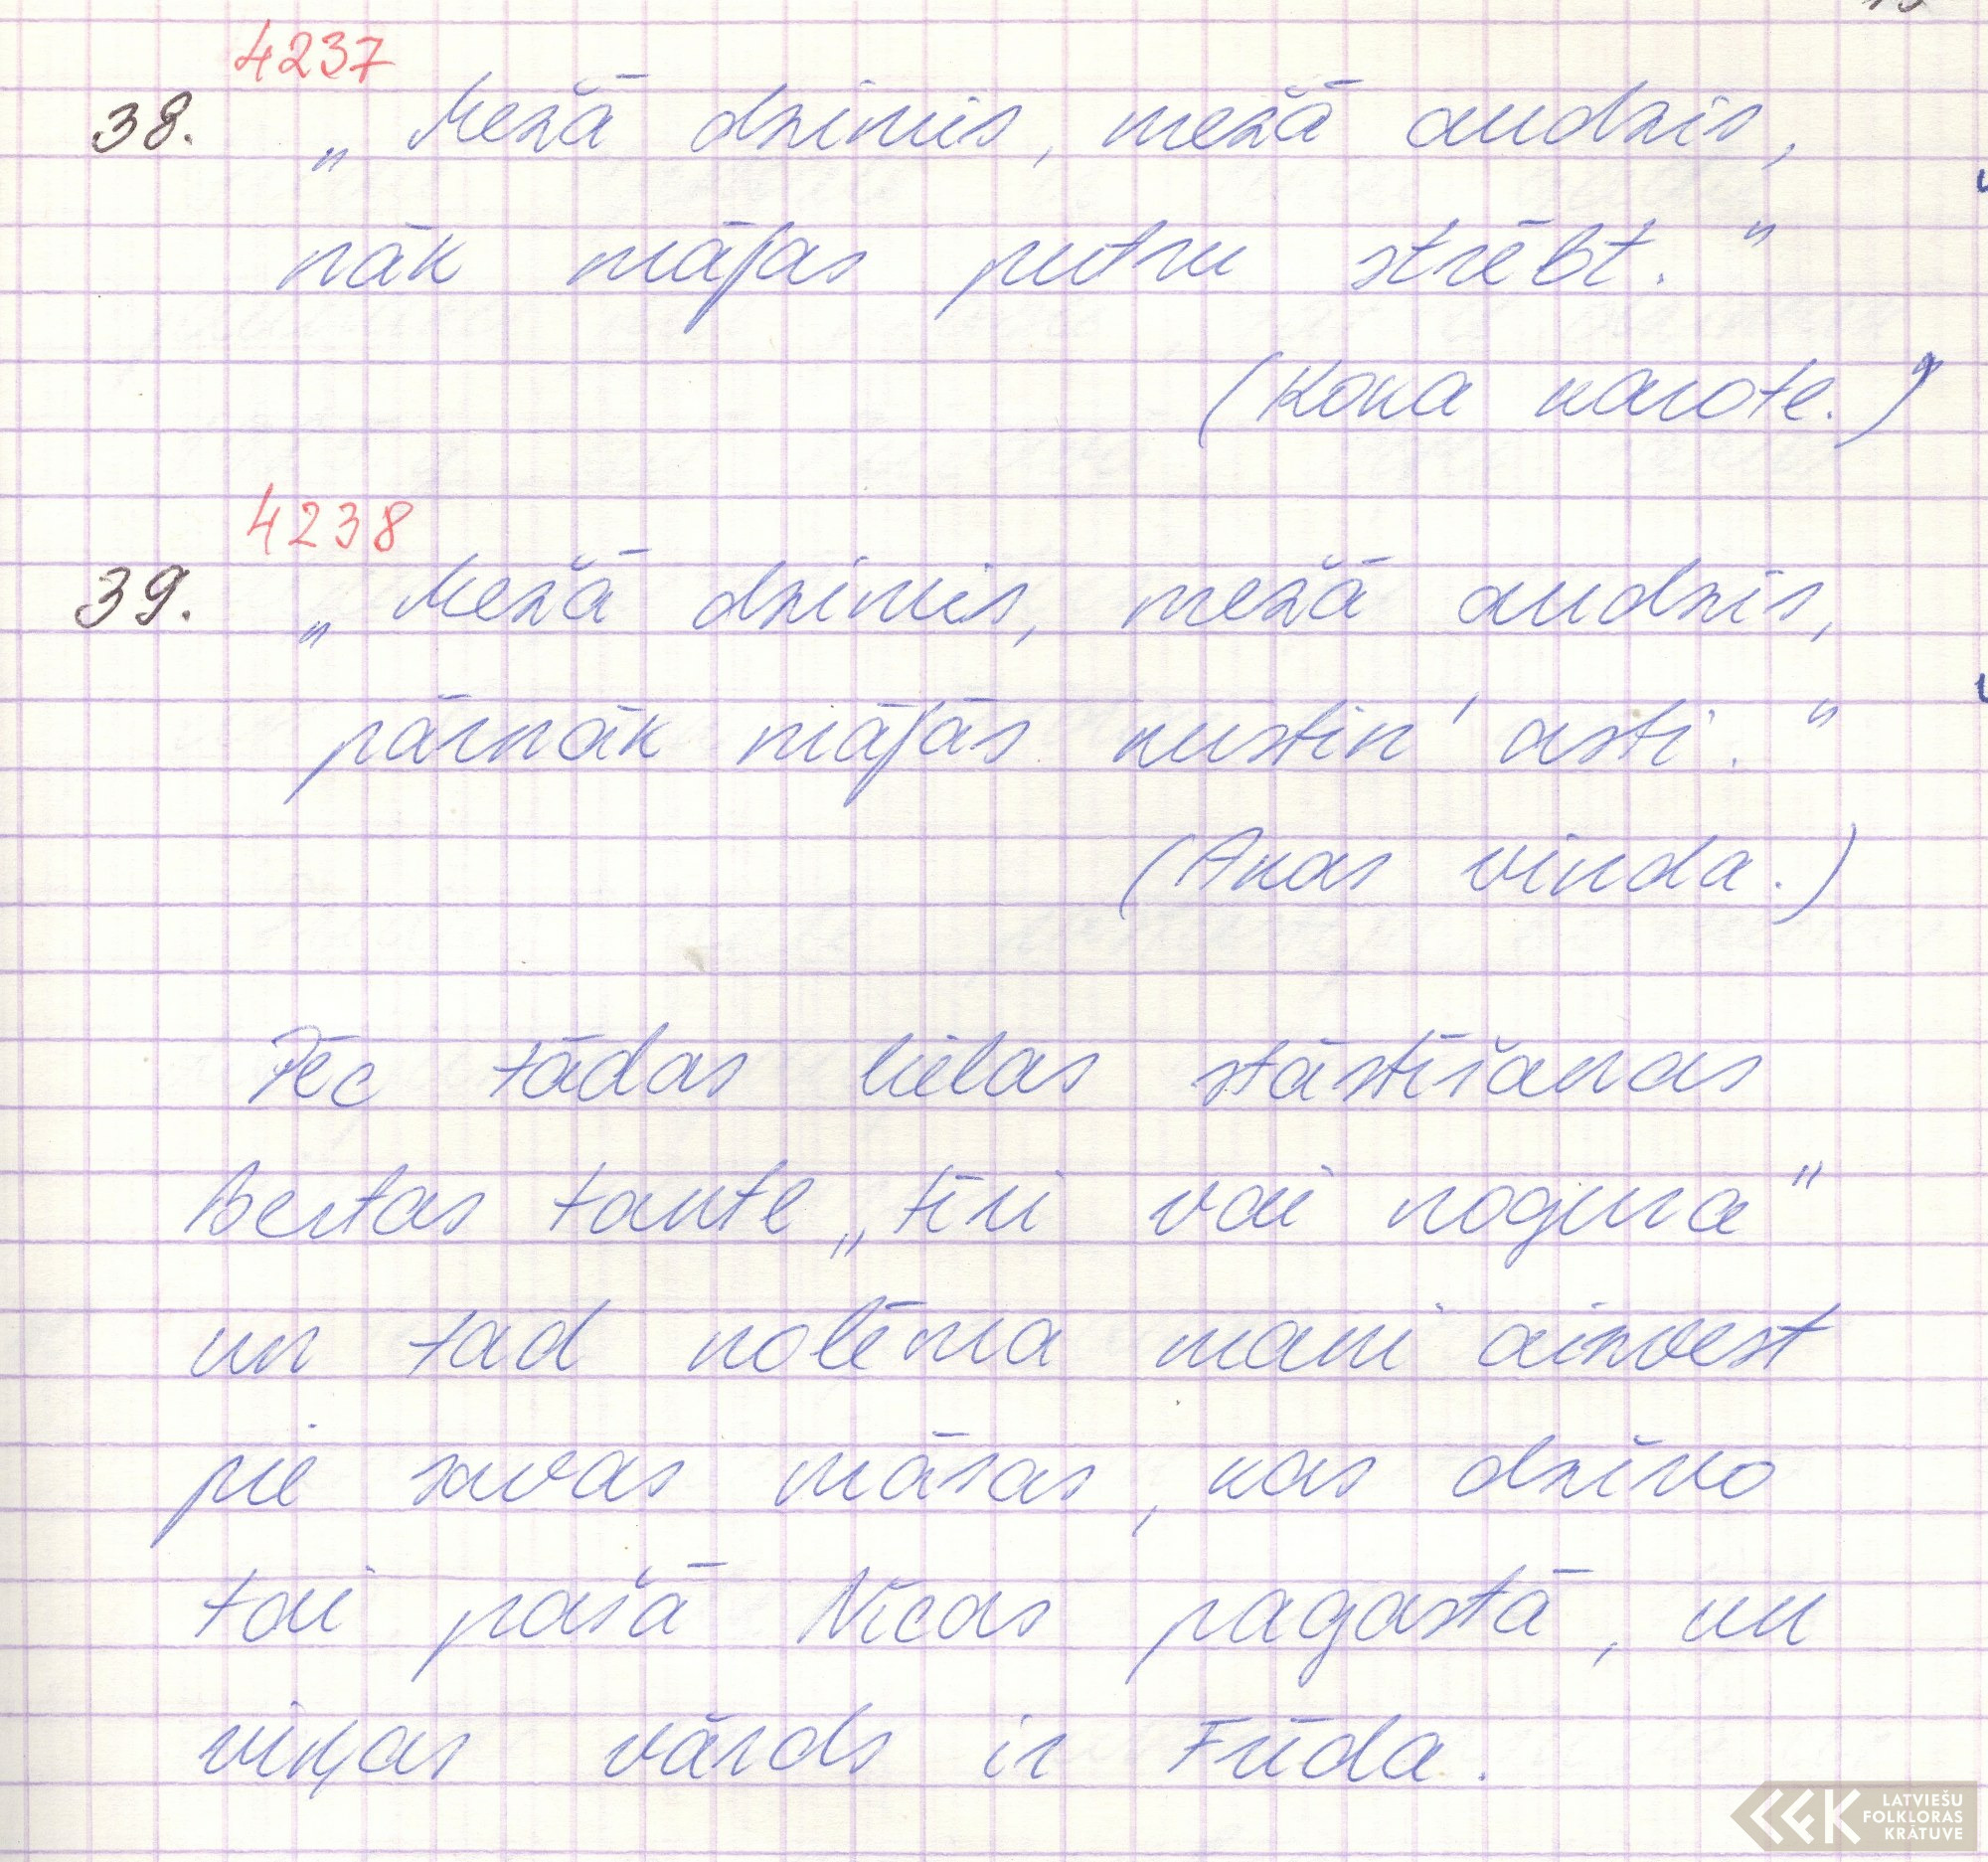 4237
38. „Mežā dzimis, mežā audzis,
nāk mājas putru strēbt."
(Koka karote.)
4238
39. „Mežā dzimis, mežā audzis,
pārnāk mājās kustin' asti."
(Akas vinda.)
Pēc tādas lielas stāstīšanas
Bertas tante „tīri vai nogura"
un tad nolēma mani aizvest
pie savas māsas, kas dzīvo
tai pašā Nīcas pagastā, un
viņas vārds ir Frīda.
LATVIEŠU
FOLKLORAS
KRĀTUVE